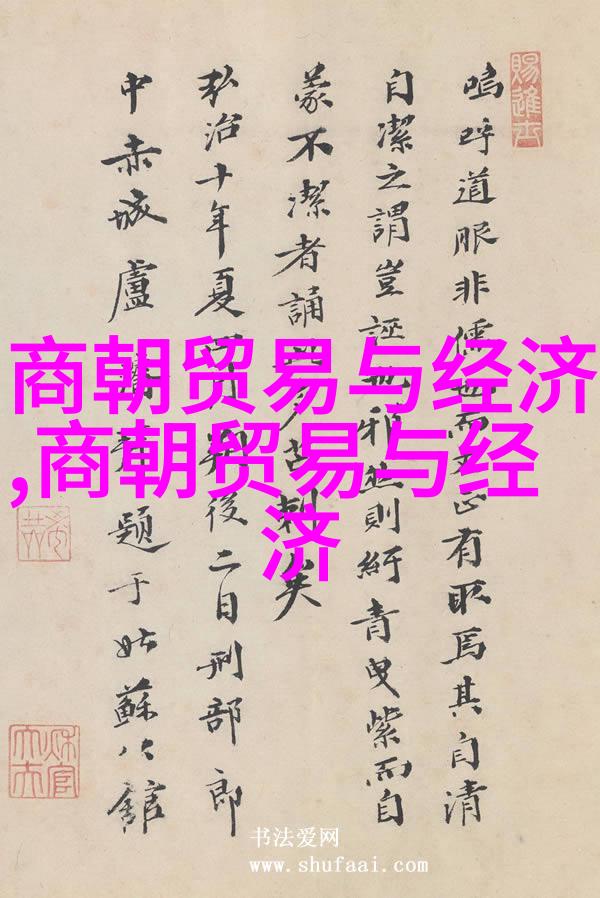 商朝贸易与经济
,商朝贸易与经
济
賜進士
嗚呼道服非儒而正有取焉其自清
自潔之謂豈誣邪則紆青曳紫而自
蒙不潔者誦矣
弘治十年夏月後二日刑部郎
中赤城盧題于姑蘇公館
书法爱网
www.shufaai.com